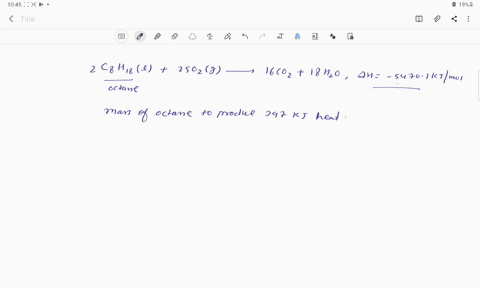 10:45
19%
Title
2 C8H18(l) + 25O2(g) ⟶ 16CO2 + 18H2O, ΔH= -5470.1KJ/mol
octane
mass of octane to produce 297 KJ heat.